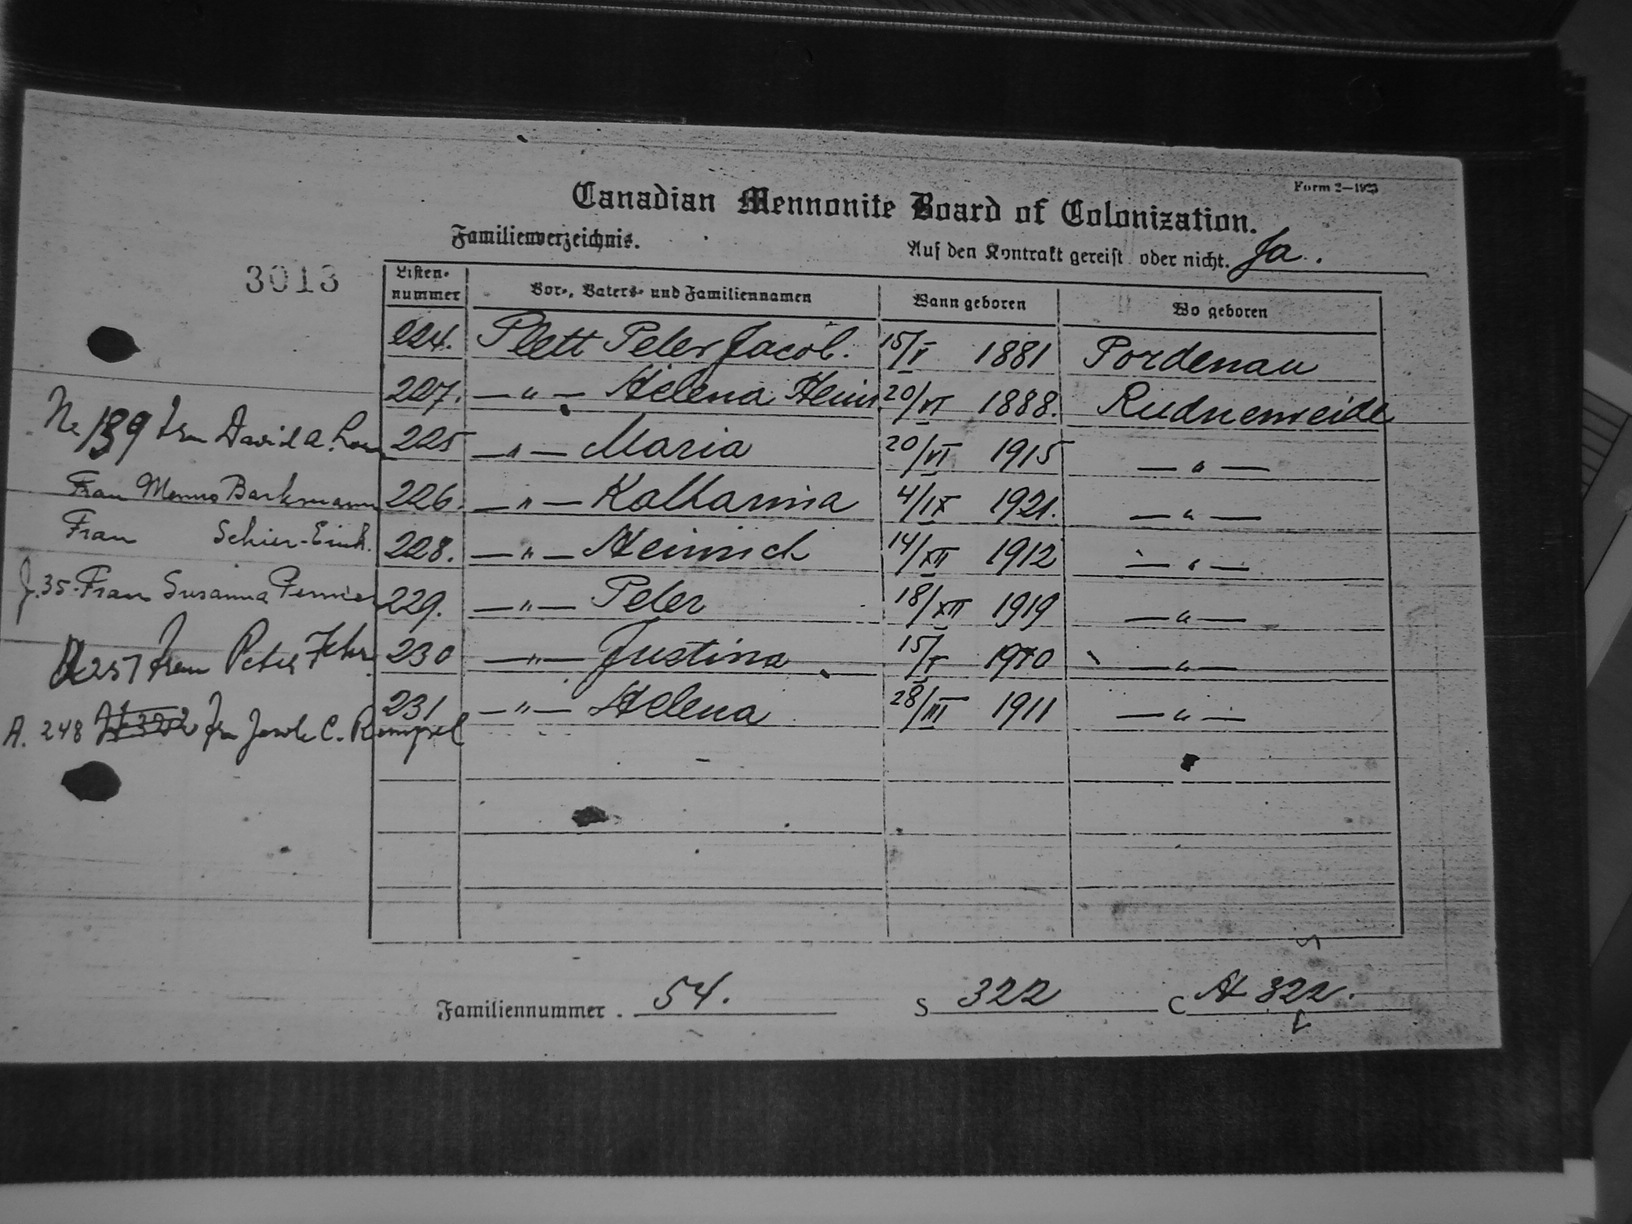 Form 2—1923
Canadian Mennonite Board of Colonization.
Familienverzeichnis.
Auf den Kontrakt gereist oder nicht. Ja.
3013
Listen-nummer Vor-, Vaters- und Familiennamen Wann geboren Wo geboren
224. Plett Peter Jacob. 15/V 1881 Pordenau
227. —"— Helena Hein 20/VI 1888. Rudnerweide
139 Frau David A. 225 —"— Maria 20/VI 1915 —"—
Frau Menno Barkmann 226. —"— Katharina 4/IX 1921. —"—
Frau Schier-Einh. 228. —"— Heinrich 14/XII 1912 —"—
J.35-Frau Susanna 229. —"— Peter 18/XII 1919 —"—
257 Frau Peter Fehr 230 —"— Justina 15/V —"—
A. 248 Frau Jacob C. Rempel 231 —"— Helena 28/III 1911 —"—
Familiennummer. 54. S 322 C At 322.